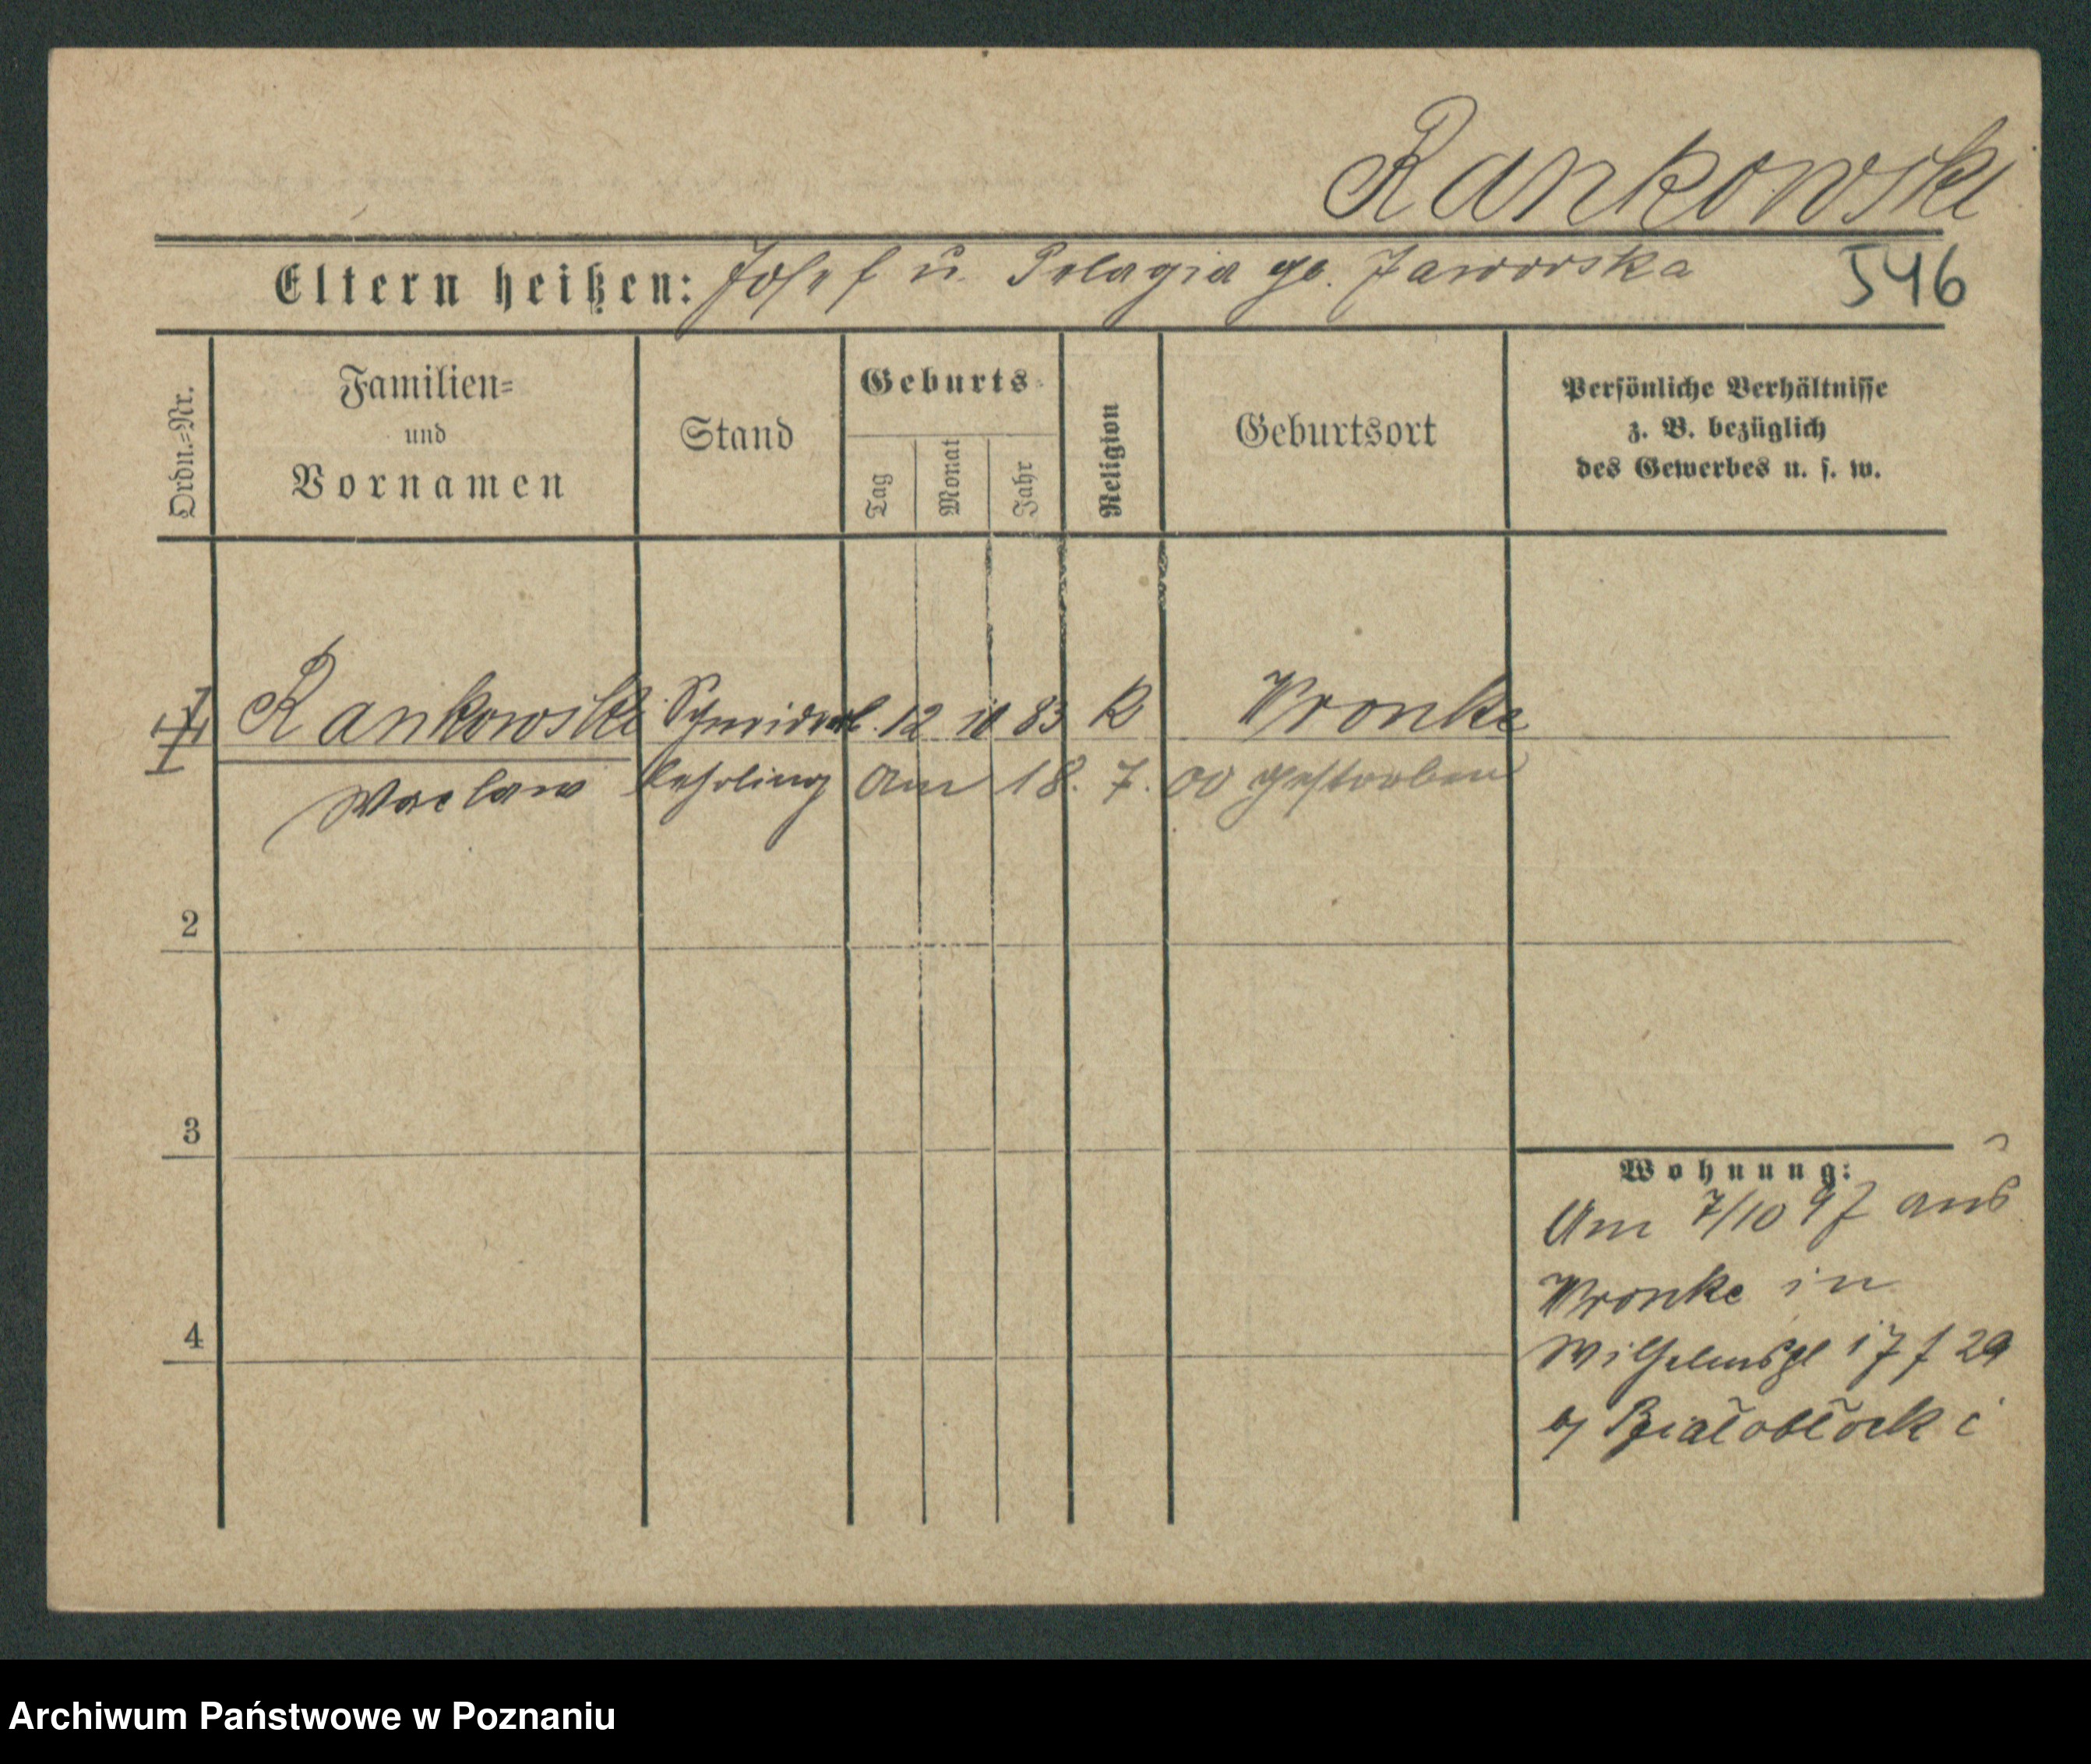 Rankowski
Eltern heißen: Josef u. Pelagia ge. Jaworska 546
Ordn.=Nr.
Familien=
und
Vornamen
Stand
Geburts=
Tag
Monat
Jahr
Religion
Geburtsort
Persönliche Verhältnisse
z. B. bezüglich
des Gewerbes u. s. w.
1 Rankowski Schneider 12 10 83 K Wronke
Waclaw lehrling am 18. 7. 00 gestorben
2
3
4
Wohnung:
Am 7/10 97 aus
Wronke in
Wilhelmspl 17 f 29
Białobłocki
Archiwum Państwowe w Poznaniu